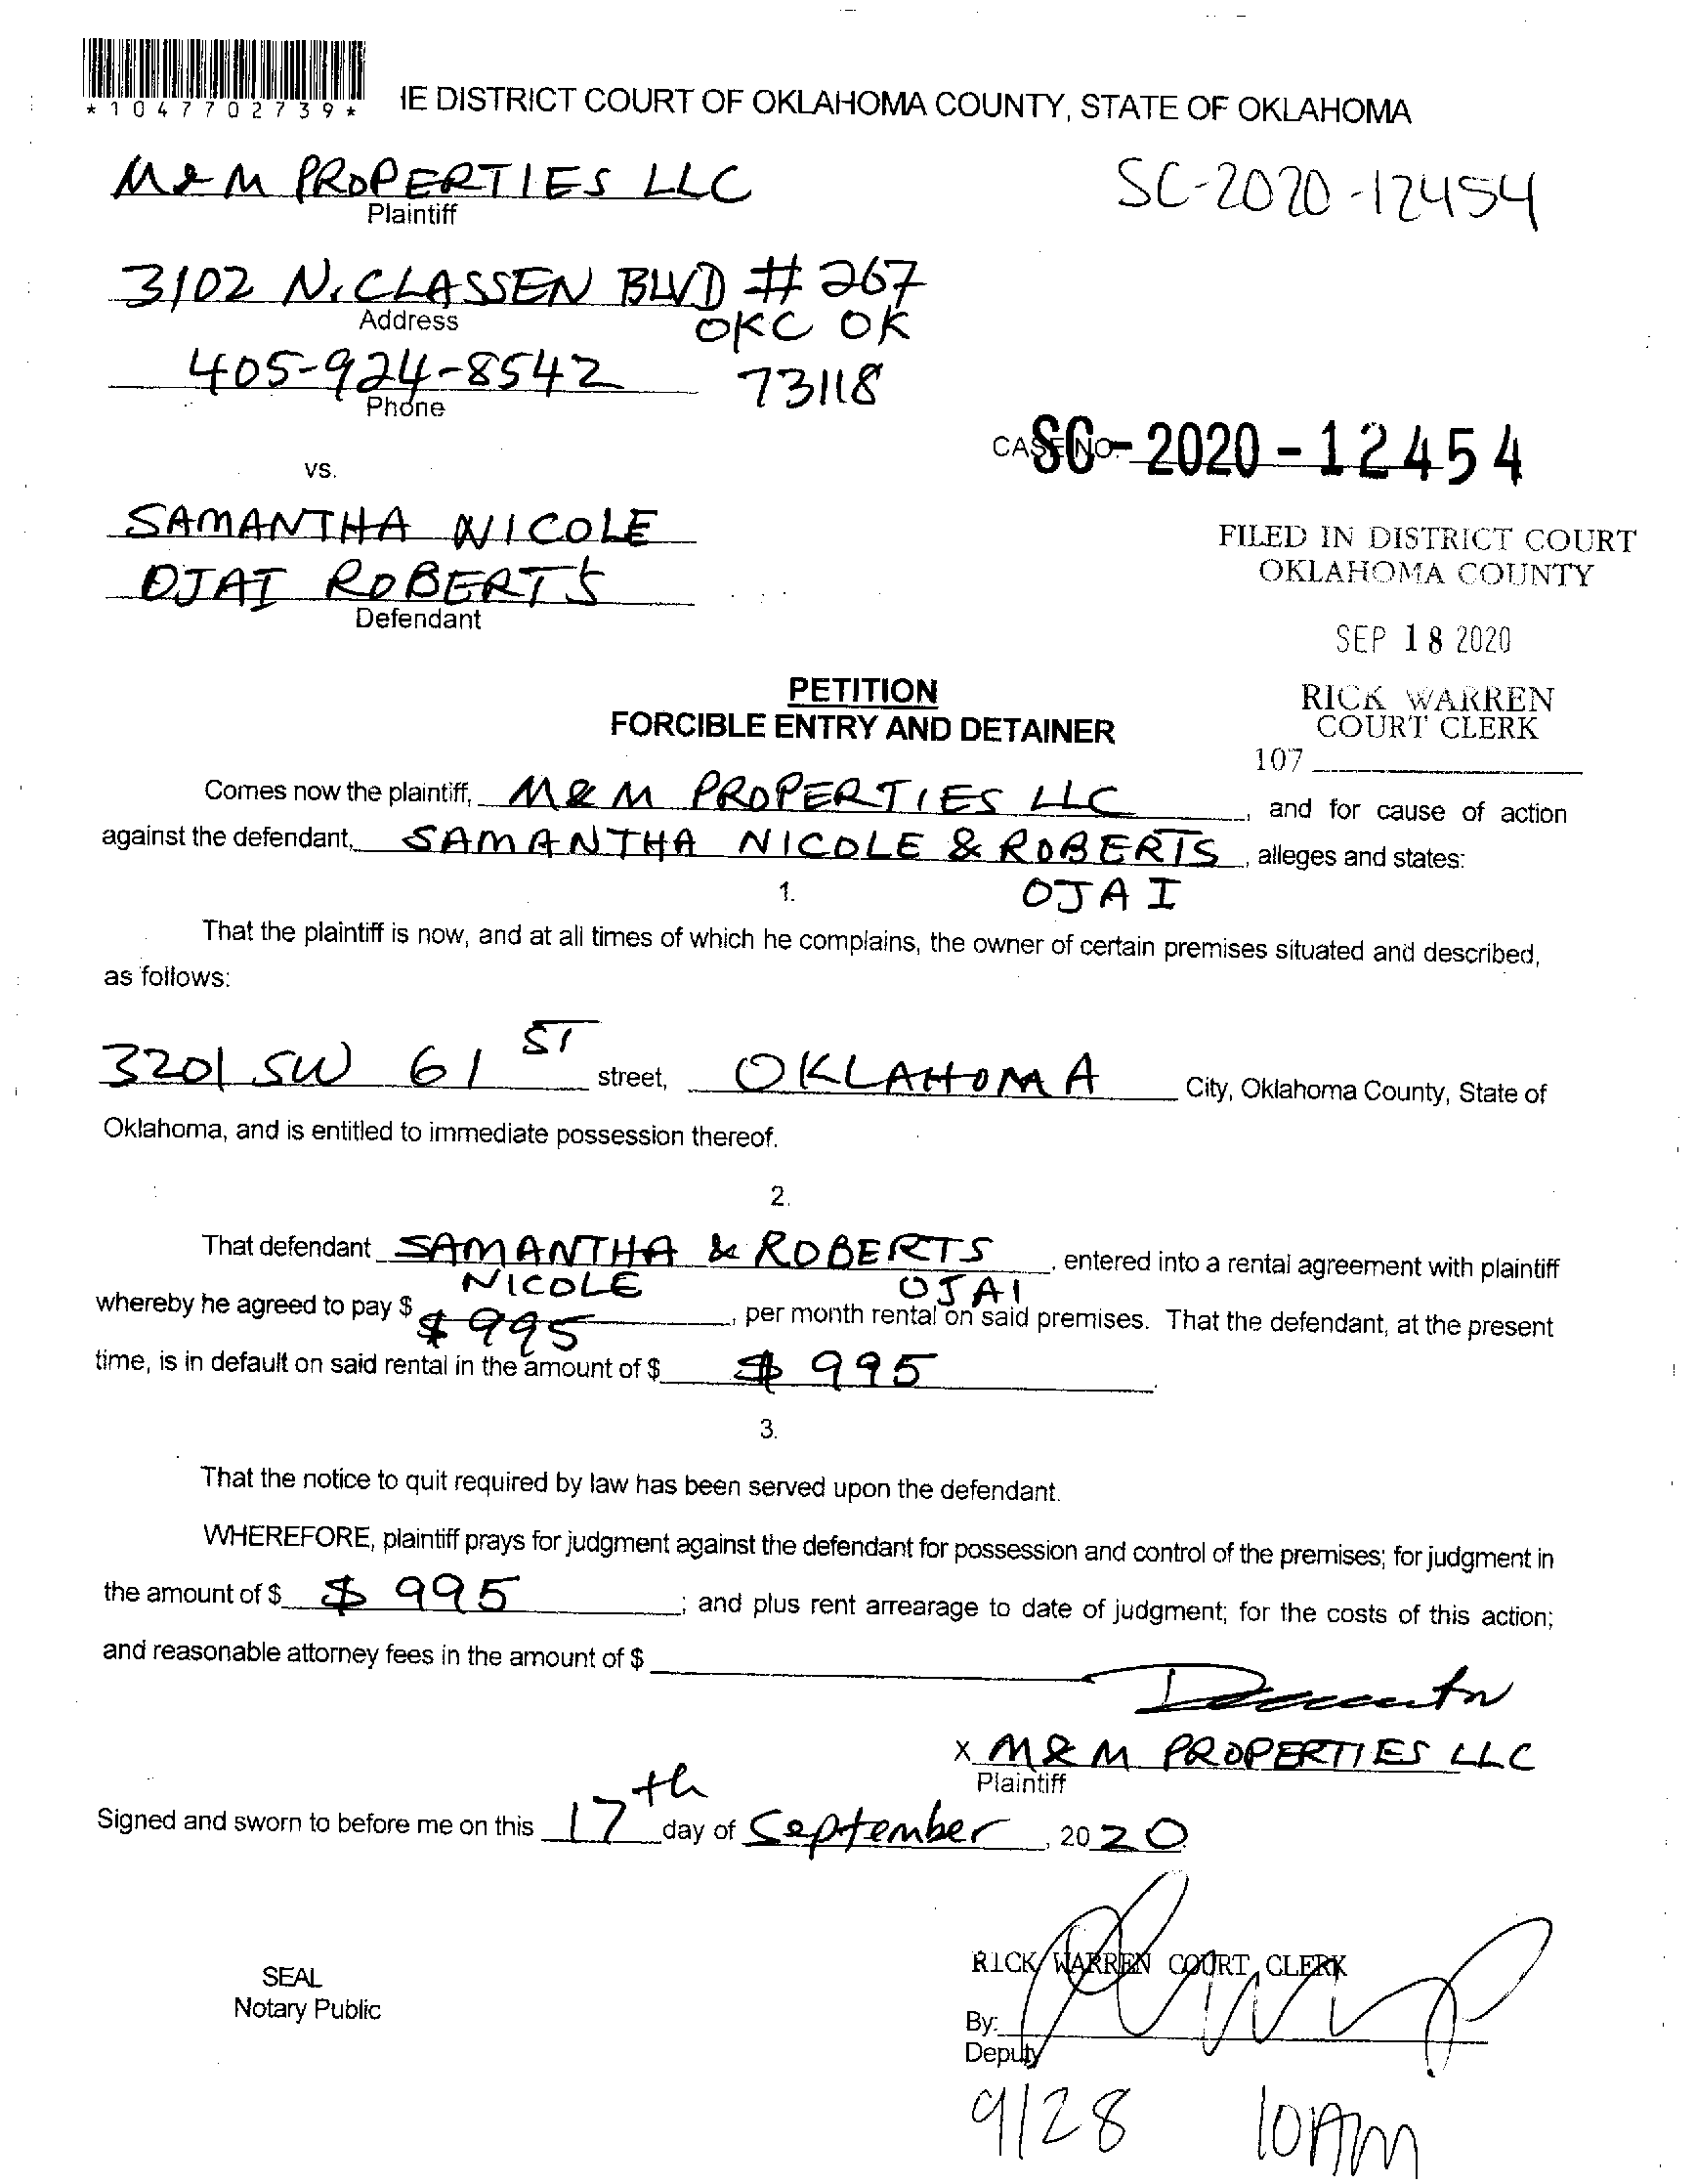 *1047702739*
IE DISTRICT COURT OF OKLAHOMA COUNTY, STATE OF OKLAHOMA
M & M PROPERTIES LLC
Plaintiff
SC-2020-12454
3102 N. CLASSEN BLVD # 267
Address
OKC OK
405-924-8542
73118
Phone
CASE NO. SC-2020-12454
vs.
SAMANTHA NICOLE
OJAI ROBERTS
Defendant
FILED IN DISTRICT COURT
OKLAHOMA COUNTY
SEP 18 2020
RICK WARREN
COURT CLERK
107
PETITION
FORCIBLE ENTRY AND DETAINER
Comes now the plaintiff, M & M PROPERTIES LLC, and for cause of action
against the defendant, SAMANTHA NICOLE & ROBERTS, alleges and states:
OJAI
1.
That the plaintiff is now, and at all times of which he complains, the owner of certain premises situated and described,
as follows:
3201 SW 61 ST street, OKLAHOMA City, Oklahoma County, State of
Oklahoma, and is entitled to immediate possession thereof.
2.
That defendant SAMANTHA & ROBERTS, entered into a rental agreement with plaintiff
NICOLE OJAI
whereby he agreed to pay $ $995, per month rental on said premises. That the defendant, at the present
time, is in default on said rental in the amount of $ $ 995.
3.
That the notice to quit required by law has been served upon the defendant.
WHEREFORE, plaintiff prays for judgment against the defendant for possession and control of the premises; for judgment in
the amount of $ $ 995; and plus rent arrearage to date of judgment; for the costs of this action;
and reasonable attorney fees in the amount of $
x M & M PROPERTIES LLC
Plaintiff
Signed and sworn to before me on this 17th day of September, 2020
SEAL
Notary Public
RICK WARREN COURT CLERK
By:
Deputy
9/28 10AM